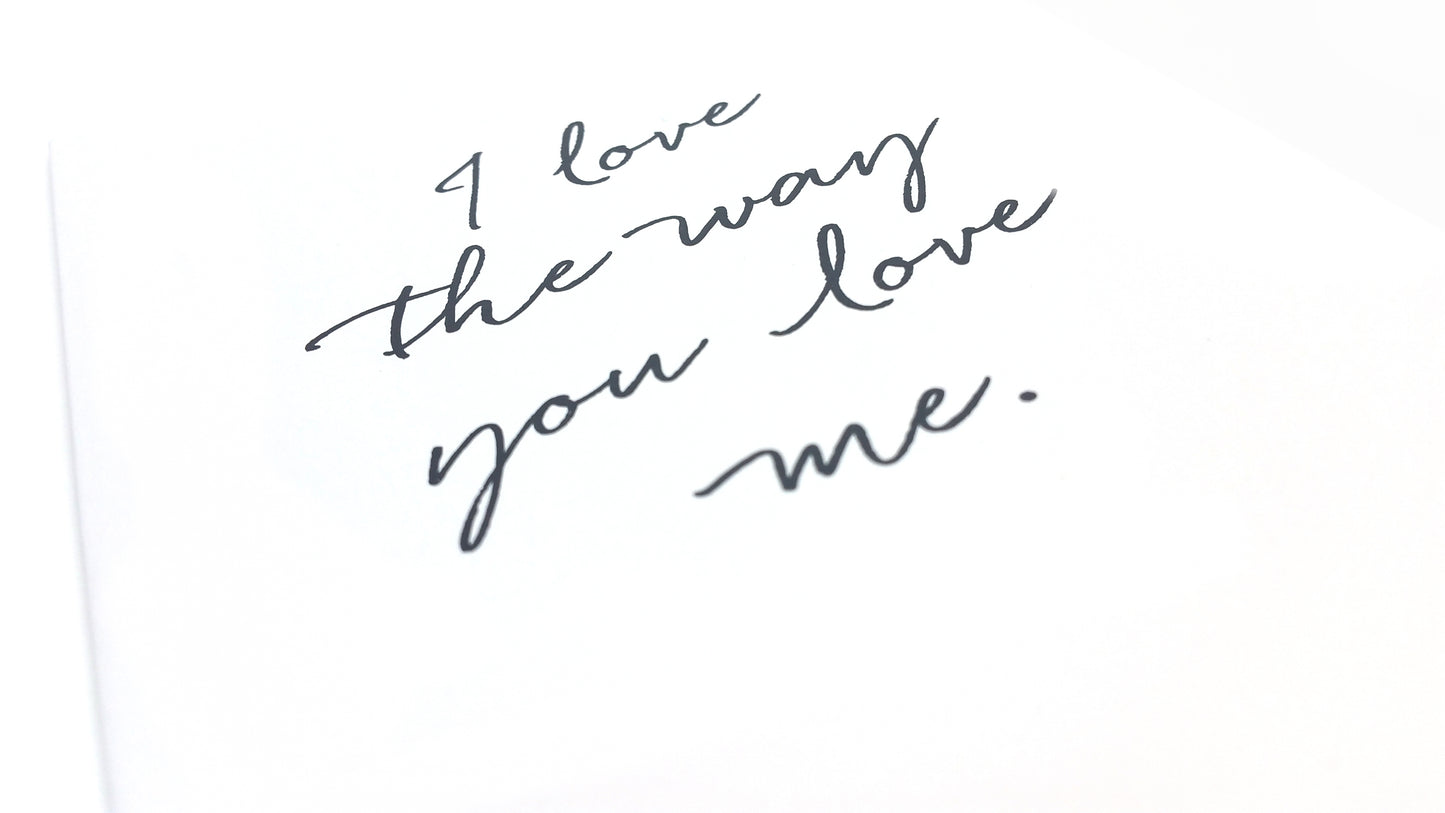 I love
the way
you love
me.